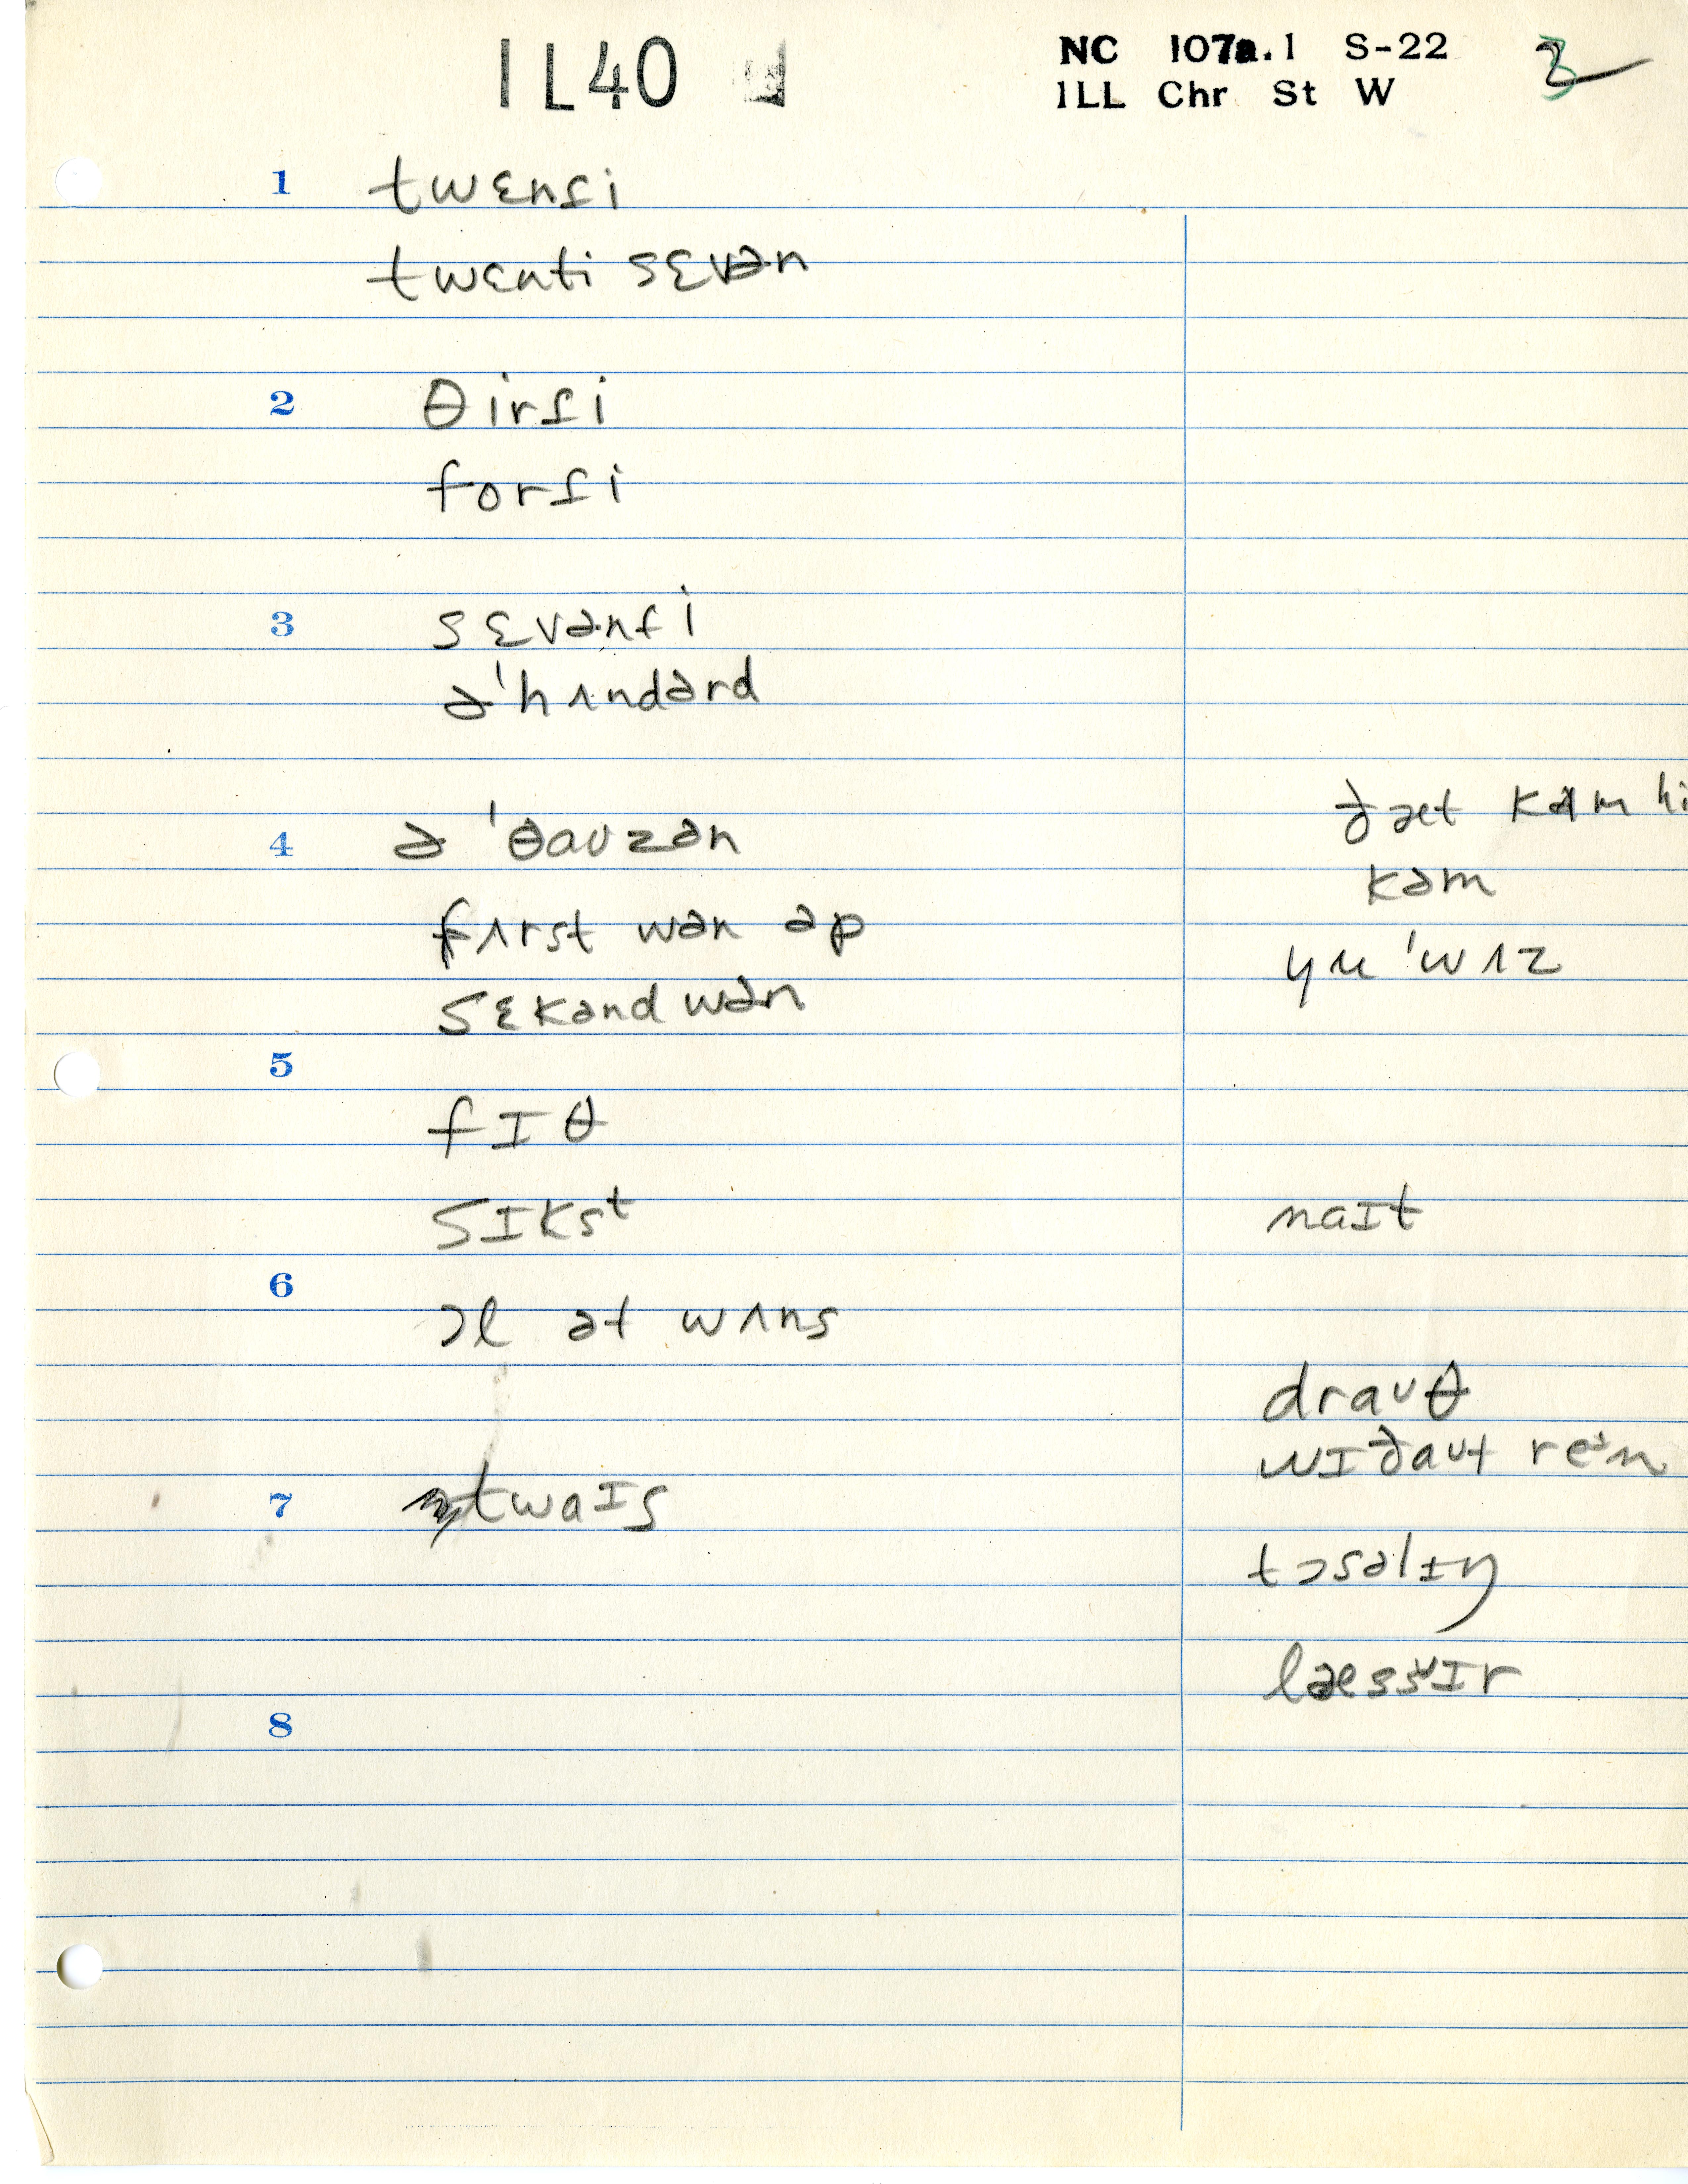 IL40
NC 107a.1 S-22
ILL Chr St W
1 twɛnſi
twɛnti sɛvən
2 θirſi
forſi
3 sɛvənſi
ə'hʌndərd
4 ə 'θaʊzən
fʌrst wən əp
sɛkənd wən
5
fɪθ
sɪksᵗ
6
ɔl ət wʌns
7 twaɪs
8
kəm
yu 'wʌz
naɪt
draʊθ
wɪðaʊt reᶦn